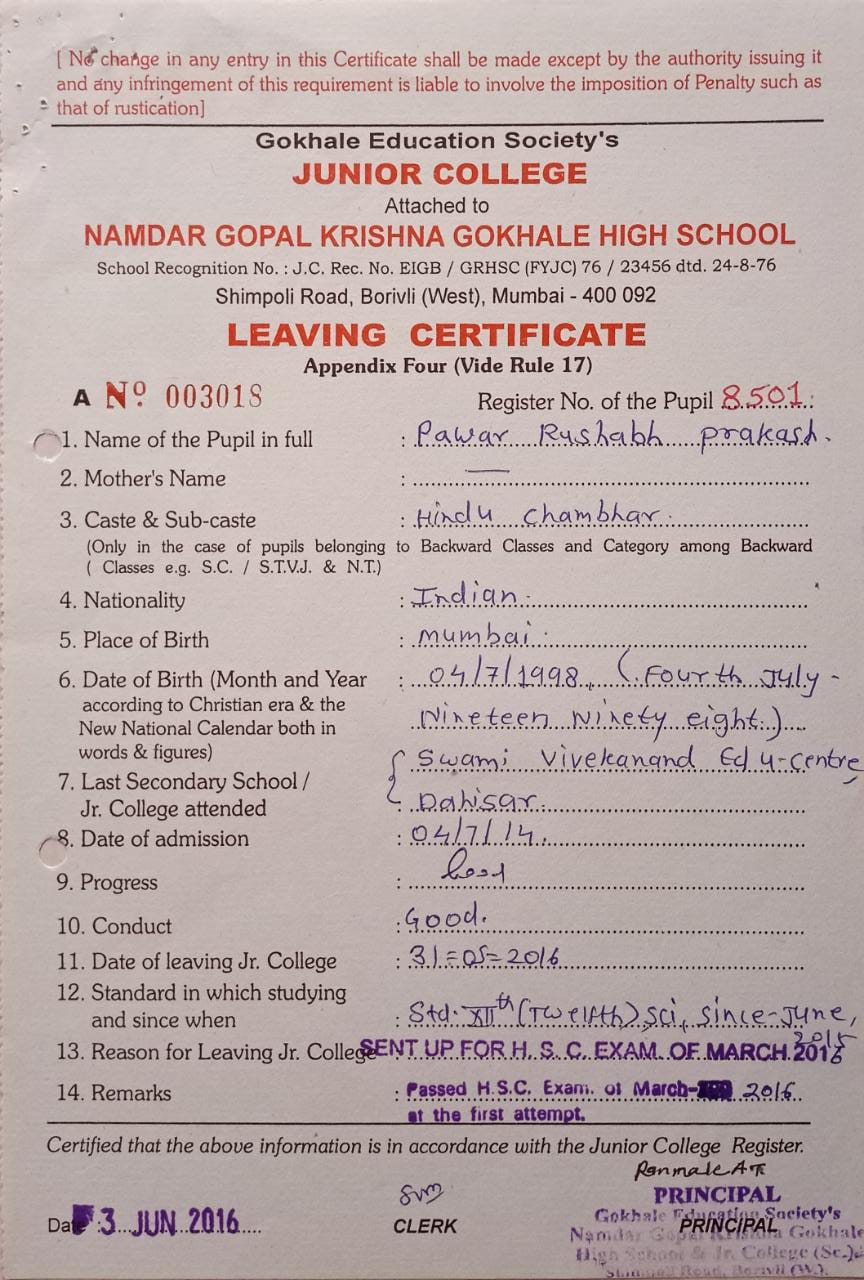 [ No change in any entry in this Certificate shall be made except by the authority issuing it
and any infringement of this requirement is liable to involve the imposition of Penalty such as
that of rustication]
Gokhale Education Society's
JUNIOR COLLEGE
Attached to
NAMDAR GOPAL KRISHNA GOKHALE HIGH SCHOOL
School Recognition No. : J.C. Rec. No. EIGB / GRHSC (FYJC) 76 / 23456 dtd. 24-8-76
Shimpoli Road, Borivli (West), Mumbai - 400 092
LEAVING CERTIFICATE
Appendix Four (Vide Rule 17)
A No. 003018 Register No. of the Pupil 8501
1. Name of the Pupil in full : Pawar Rushabh prakash.
2. Mother's Name : —
3. Caste & Sub-caste : Hindu Chambhar.
(Only in the case of pupils belonging to Backward Classes and Category among Backward
( Classes e.g. S.C. / S.T.V.J. & N.T.)
4. Nationality : Indian.
5. Place of Birth : Mumbai.
6. Date of Birth (Month and Year : 04/7/1998, (Fourth July-
according to Christian era & the
New National Calendar both in Nineteen Ninety eight.)
words & figures)
7. Last Secondary School / { Swami Vivekanand Edu-Centre,
Jr. College attended : Dahisar.
8. Date of admission : 04/7/14.
9. Progress : Good
10. Conduct : Good.
11. Date of leaving Jr. College : 31=05=2016
12. Standard in which studying
and since when : Std. XIIth (Twelfth) sci, since-June,
2015
13. Reason for Leaving Jr. College SENT UP FOR H. S. C. EXAM. OF MARCH 2016
14. Remarks : Passed H.S.C. Exam. of March- 2016
at the first attempt.
Certified that the above information is in accordance with the Junior College Register.
PRINCIPAL
Gokhale Education Society's
Date : 3 JUN 2016 CLERK PRINCIPAL
Namdar Gopal Krishna Gokhale
High School & Jr. College (Sc.)
Shimpoli Road, Borivli (W.).